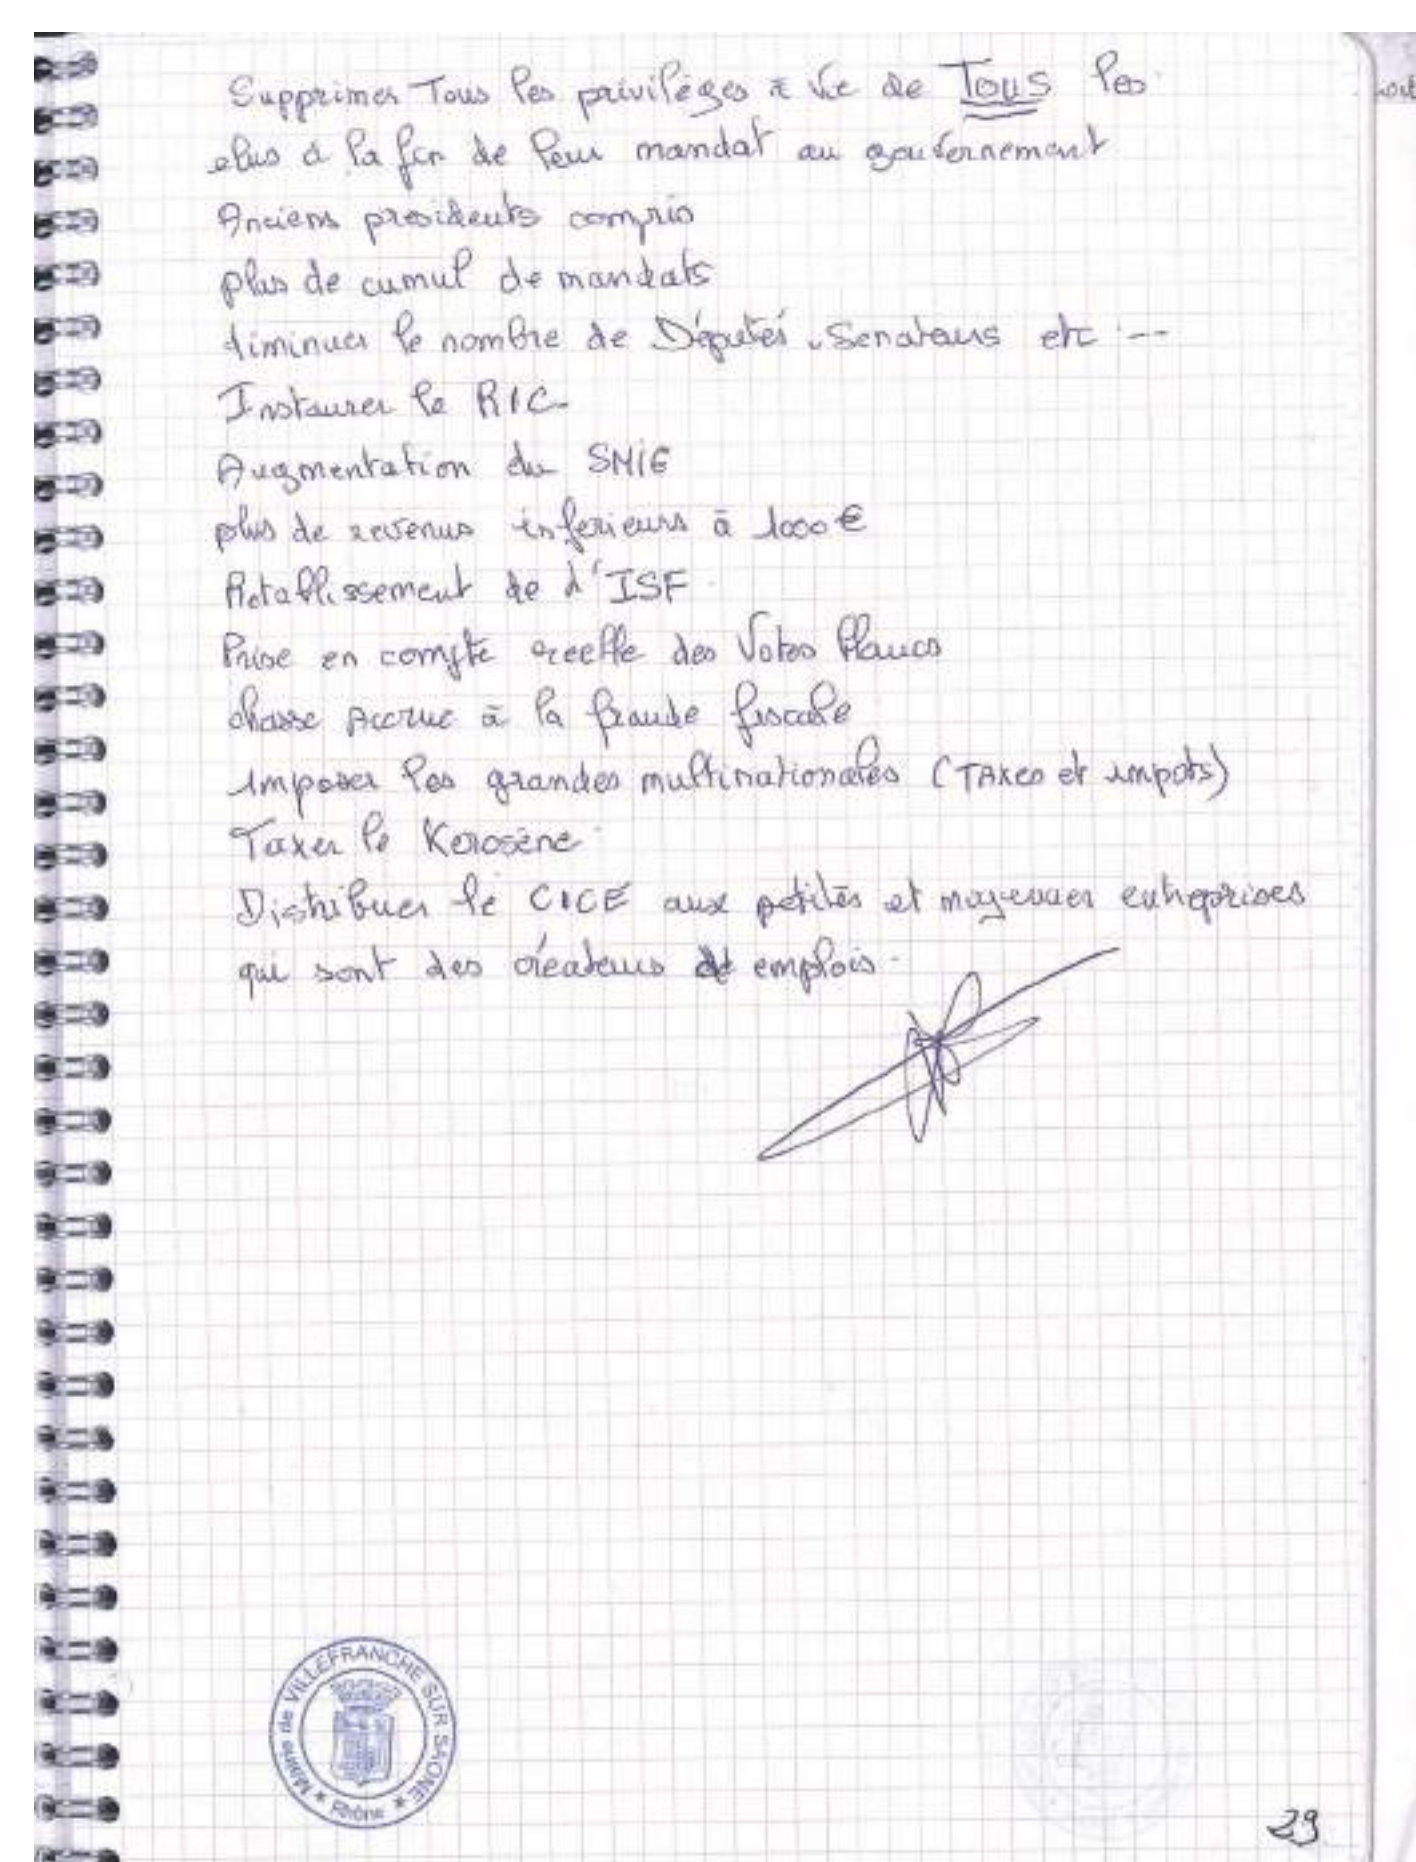 Supprimer Tous les privilèges à vie de Tous les
elus à la fin de leur mandat au gouvernement
Anciens presidents compris
plus de cumul de mandats
diminuer le nombre de Députés, Senateurs etc ---
Instaurer le RIC
Augmentation du SMIG
plus de revenus inferieurs à 1000 €
Retablissement de l'ISF
Prise en compte reelle des Votes blancs
chasse Accrue à la fraude fiscale
imposer les grandes multinationales (TAXES et impots)
Taxer le Kerosène
Distribuer le CICE aux petites et moyennes entreprises
qui sont des créateurs d'emplois.
Mairie de VILLEFRANCHE SUR SAONE
* Rhône *
29